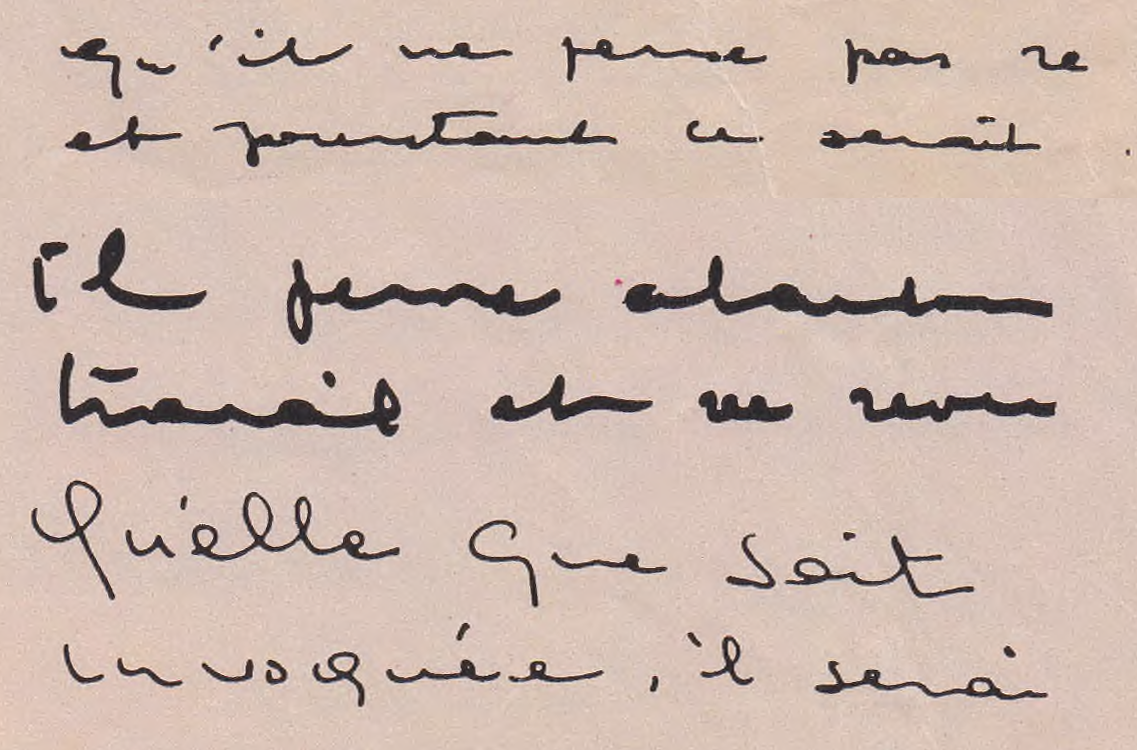 qu'il ne pense pas re
et pourtant ce serait
Il pense aban
travail et ne reve
Qu'elle que soit
invoquée, il serai